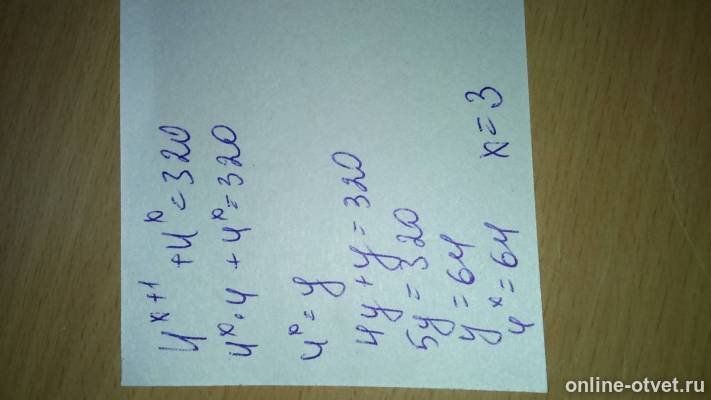 4^{x+1} + 4^x = 320
4^x · 4 + 4^x = 320
4^x = y
4y + y = 320
5y = 320
y = 64
4^x = 64
x = 3
online-otvet.ru